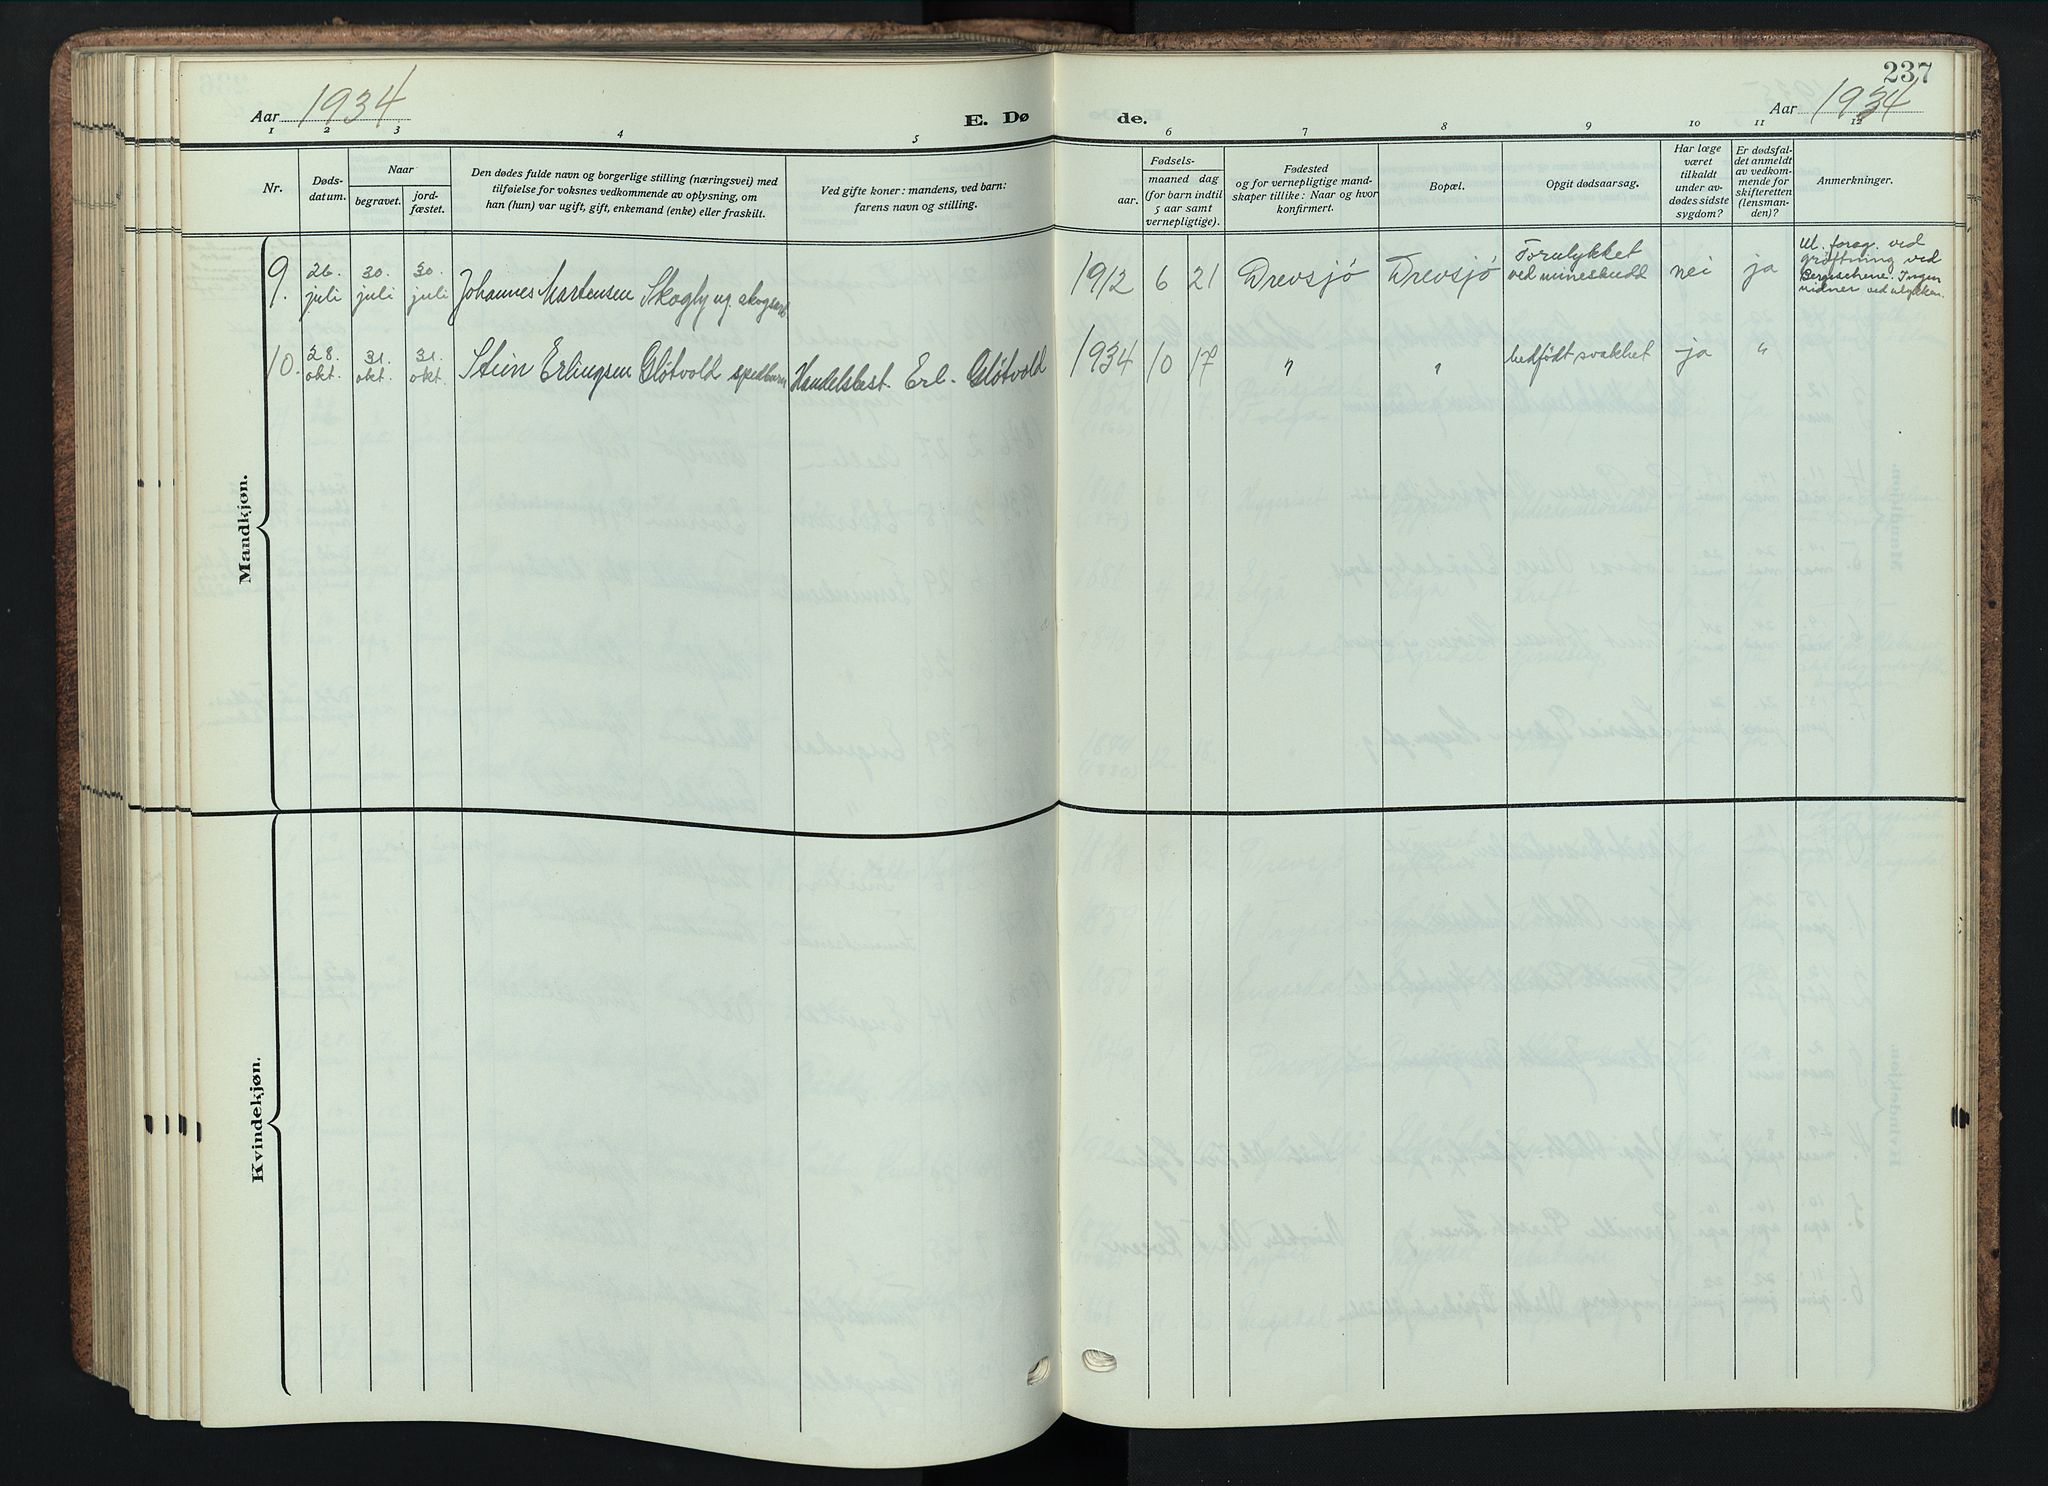 237
Aar 1934
E. Døde.
Aar 1934
1 2 3 4 5 6 7 8 9 10 11 12
Nr.
Dødsdatum.
Naar
begravet.
jordfæstet.
Den dødes fulde navn og borgerlige stilling (næringsvei) med
tilføielse for voksnes vedkommende av oplysning, om
han (hun) var ugift, gift, enkemand (enke) eller fraskilt.
Ved gifte koner: mandens, ved barn:
farens navn og stilling.
Fødsels-
aar.
maaned dag
(for barn indtil
5 aar samt
vernepligtige).
Fødested
og for vernepligtige mand-
skaper tillike: Naar og hvor
konfirmert.
Bopæl.
Opgit dødsaarsag.
Har læge
været
tilkaldt
under av-
dødes sidste
sygdom?
Er dødsfal-
det anmeldt
av vedkom-
mende for
skifteretten
(lensman-
den)?
Anmerkninger.
Mandkjøn.
9. 26. juli 30. juli 30. juli Johannes Martensen Skogly ug. skogsarb. 1912 6 21 Drevsjø Drevsjø Forulykket ved mineskudd nei ja Ul. foreg. ved grøftning ved Ingen vidner ved ulykken.
10. 28. okt. 31. okt. 31. okt. Stein Erlingsen Gløtvold spedbarn Handelsbest. Erl. Gløtvold 1934 10 17 " " medfødt svakhet ja "
Kvindekjøn.